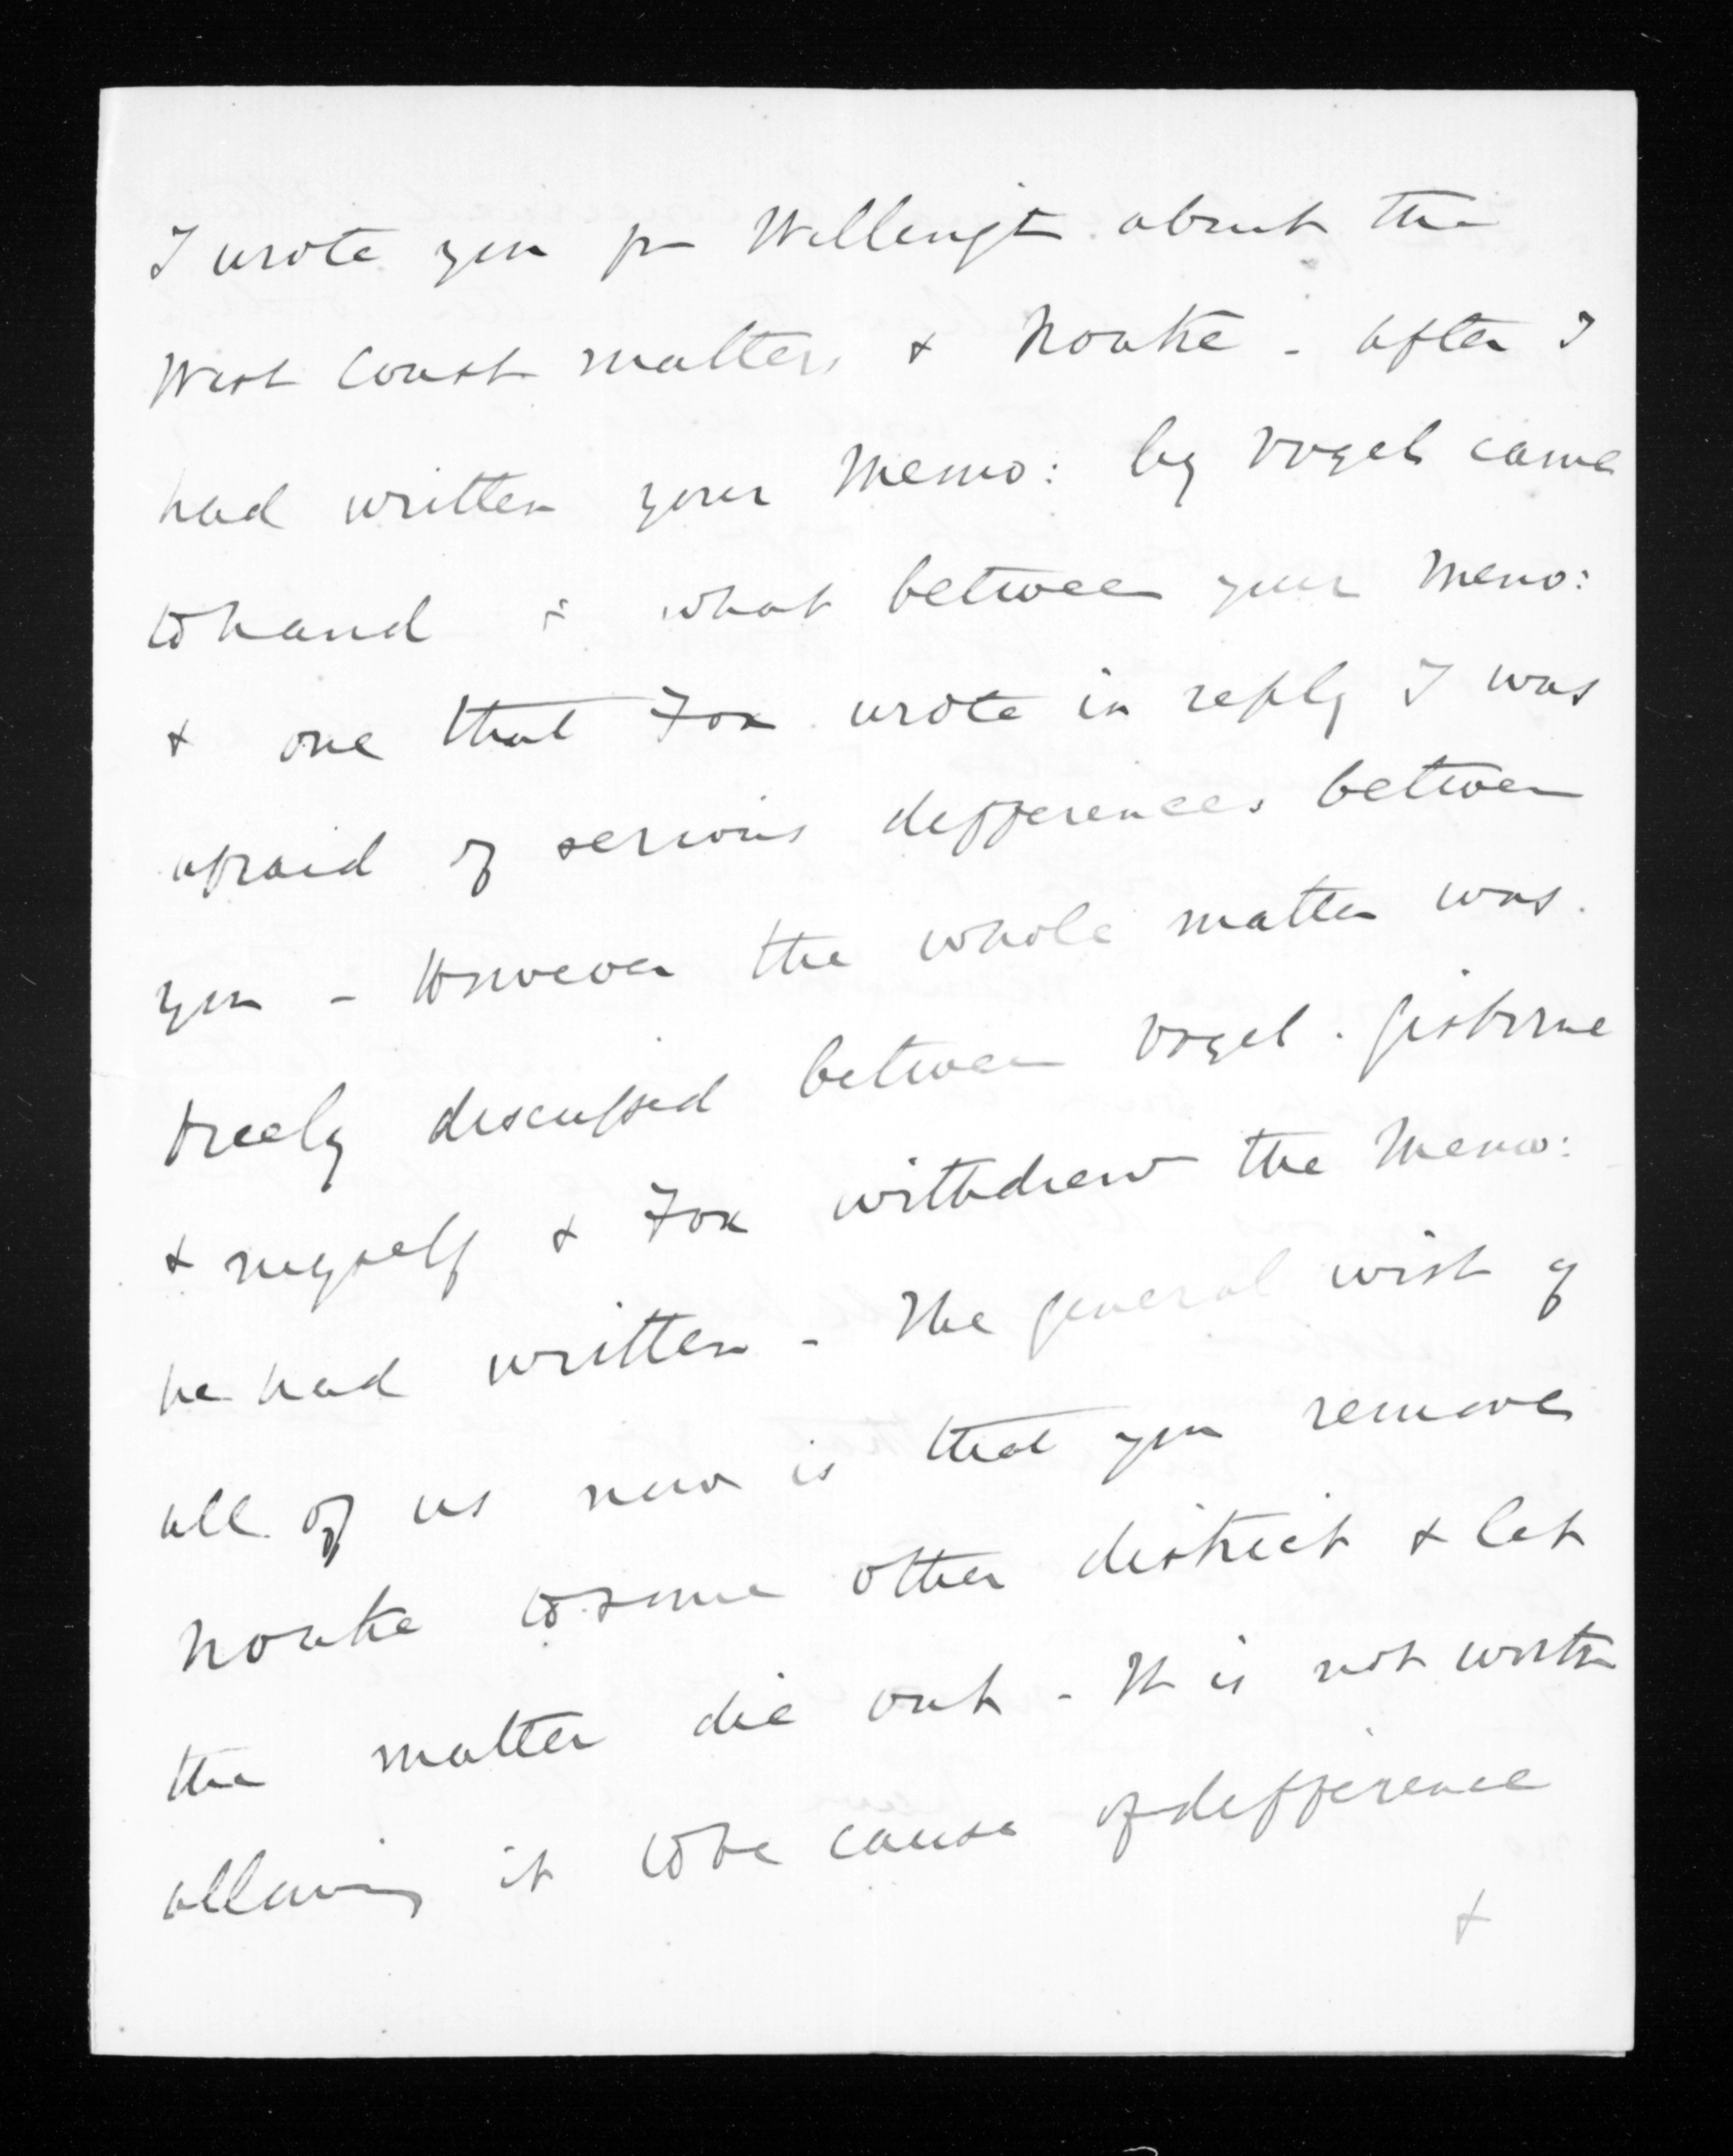 I wrote you pr Wellingt about the
West Coast matters & Noake - after I
had written your Memo: by Vogel came
to hand & what between your Memo:
& one that Fox wrote in reply I was
afraid of serious differences between
you - However the whole matter was
freely discussed between Vogel. Gisborne
& myself & Fox withdrew the Memo:
he had written - The general wish of
all of us now is that you remove
Noake to some other district & let
the matter die out - It is not worth
allowing it to be cause of difference
&